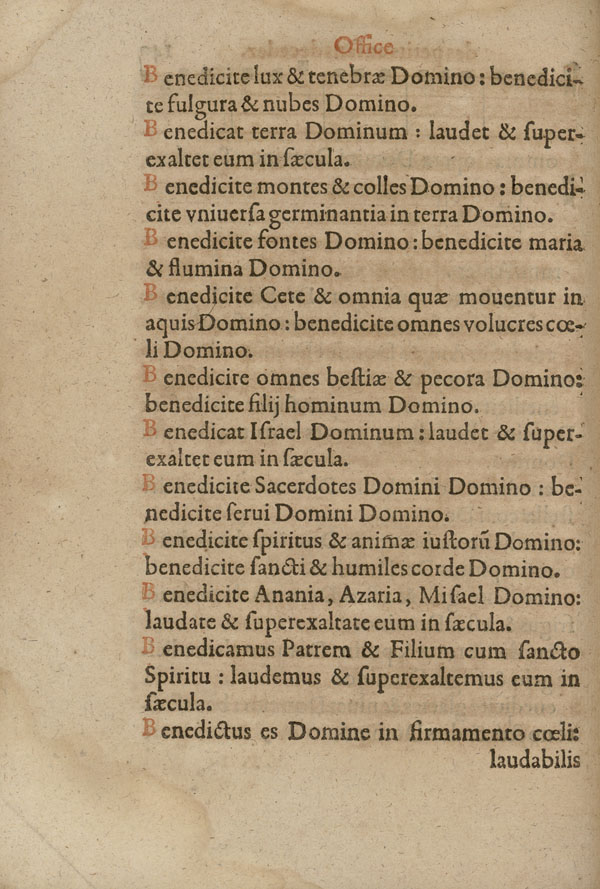 Office
Benedicite lux & tenebræ Domino: benedici-
te fulgura & nubes Domino.
Benedicat terra Dominum : laudet & ſuper-
exaltet eum in ſæcula.
Benedicite montes & colles Domino: benedi-
cite vniuerſa germinantia in terra Domino.
Benedicite fontes Domino: benedicite maria
& flumina Domino.
Benedicite Cete & omnia quæ mouentur in
aquis Domino: benedicite omnes volucres cœ-
li Domino.
Benedicite omnes beſtiæ & pecora Domino:
benedicite filij hominum Domino.
Benedicat Iſrael Dominum: laudet & ſuper-
exaltet eum in ſæcula.
Benedicite Sacerdotes Domini Domino : be-
nedicite ſerui Domini Domino.
Benedicite ſpiritus & animæ iuſtorũ Domino:
benedicite ſancti & humiles corde Domino.
Benedicite Anania, Azaria, Miſael Domino:
laudate & ſuperexaltate eum in ſæcula.
Benedicamus Patrem & Filium cum ſancto
Spiritu : laudemus & ſuperexaltemus eum in
ſæcula.
Benedictus es Domine in firmamento cœli:
laudabilis